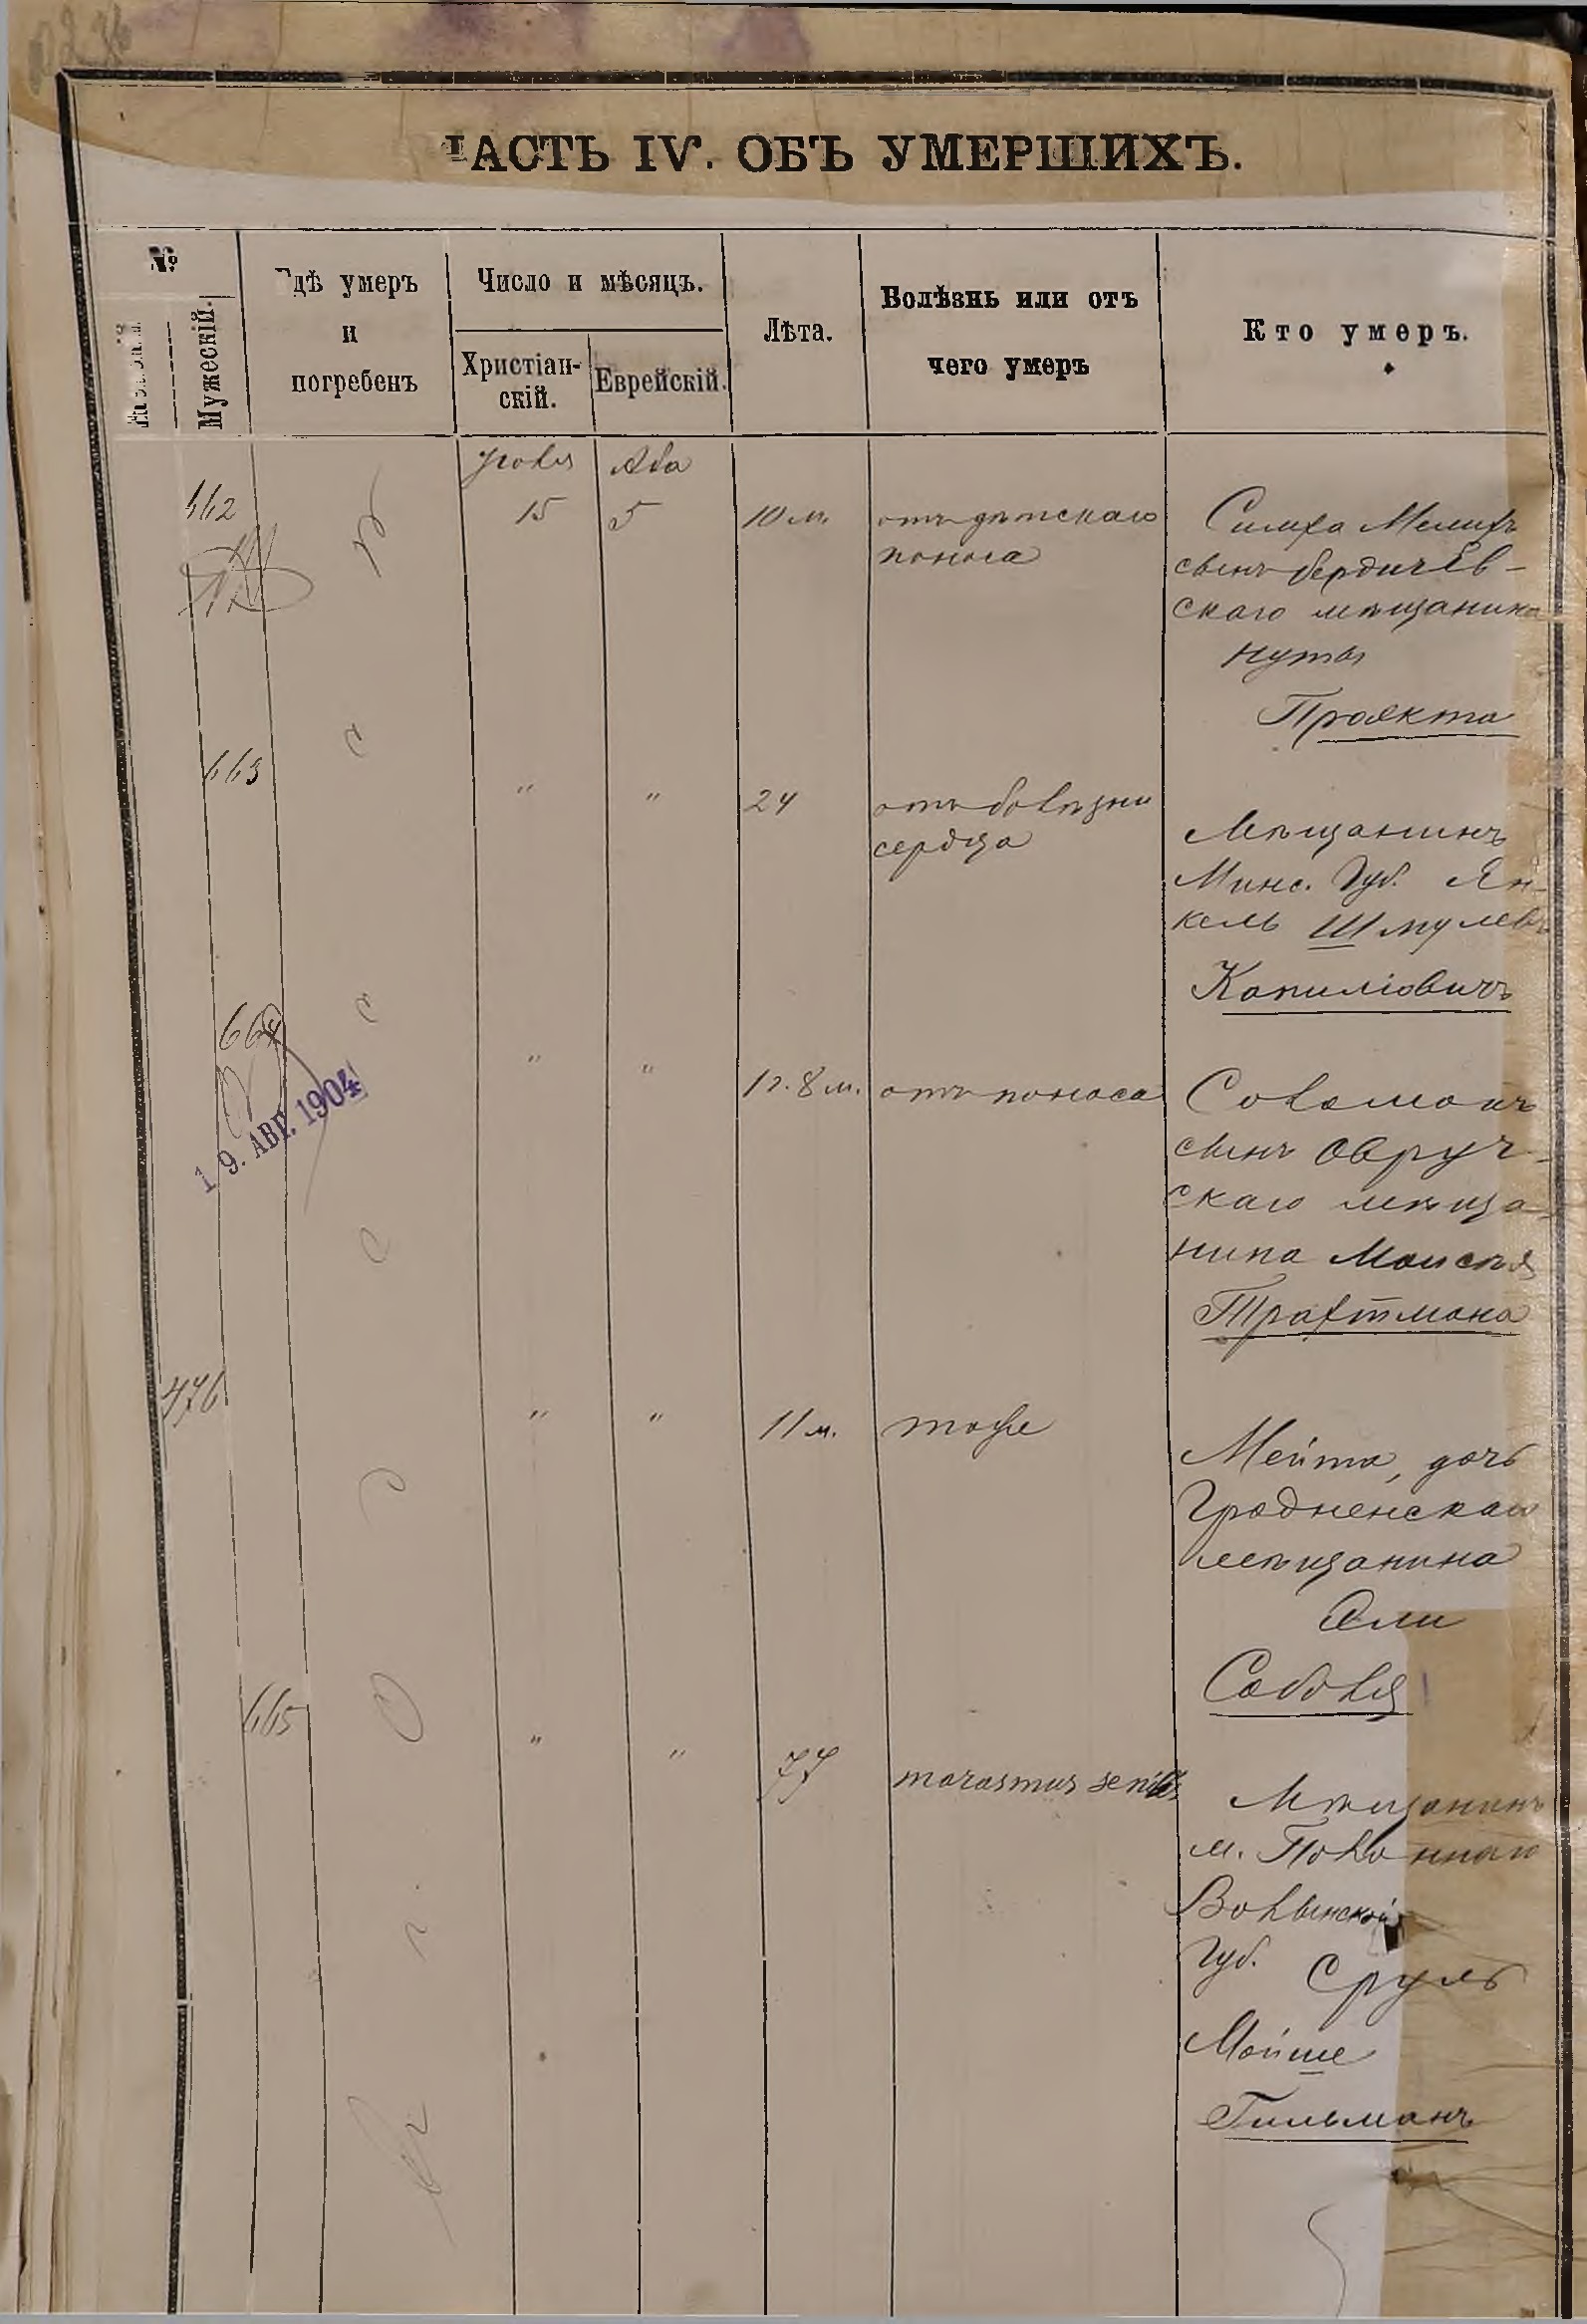 ЧАСТЬ IV. ОБЪ УМЕРШИХЪ.
№
Женскій
Мужескій.
Гдѣ умеръ
и
погребенъ
Число и мѣсяцъ.
Христіан-
скій.
Еврейскій.
Лѣта.
Болѣзнь или отъ
чего умеръ
Кто умеръ.
Іюля
Аба
662
15
5
10 м.
отъ дѣтскаго
поноса
Симха Мемихъ
сынъ бердичев-
скаго мѣщанина
Нуты
Проекта
663
"
"
24
отъ болѣзни
сердца
Мѣщанинъ
Минс. Губ. Ян-
кель Шмулевъ
Капиліовичъ
664
"
"
1 г. 8 м.
отъ поноса
Соломонъ
сынъ Овруч-
скаго мѣща-
нина Моисѣя
Трахтмана
19. АВГ. 1904
476
"
"
11 м.
тоже
Мейта, дочь
Гродненскаго
мѣщанина
Эли
Соболя
665
"
"
77
marasmus senilis
Мѣщанинъ
м. Полоннаго
Волынской
Губ. Сруль
Мойше
Гильманъ